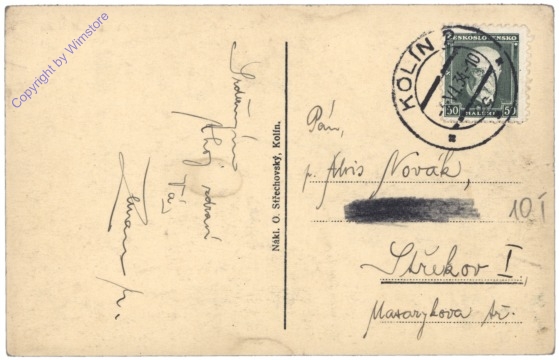 Copyright by Wimstore
Ahoj zdraví
Nákl. O. Střechovský, Kolín.
KOLÍN
ČESKOSLOVENSKO
50 HALÉŘŮ 50
Pán,
p. Alois Novák,
10 I
Střekov I,
Masarykova tř.